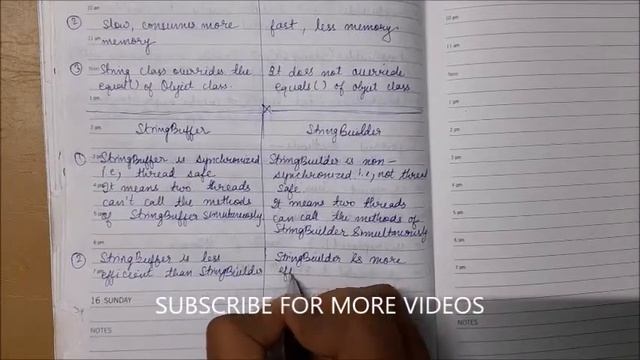 ② Slow, consumes more
memory
fast, less memory
③ String class overrides the
equals() of Object class.
It does not override
equals() of object class
StringBuffer
StringBuilder
① StringBuffer is synchronized
i.e, thread safe
It means two threads
can't call the methods
of StringBuffer simultaneously
StringBuilder is non-
synchronized i.e, not thread
safe.
It means two threads
can call the methods of
StringBuilder simultaneously
② StringBuffer is less
efficient than StringBuilder
StringBuilder is more
eff
16 SUNDAY
NOTES
NOTES
SUBSCRIBE FOR MORE VIDEOS